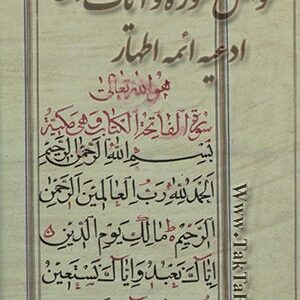 ادعیه ائمه اطهار
هو الله تعالی
سورة الفاتحة الکتاب وهی مکیة
بسم الله الرحمن الرحیم
الحمد لله رب العالمین الرحمن
الرحیم مالك یوم الدین
ایاك نعبد وایاك نستعین